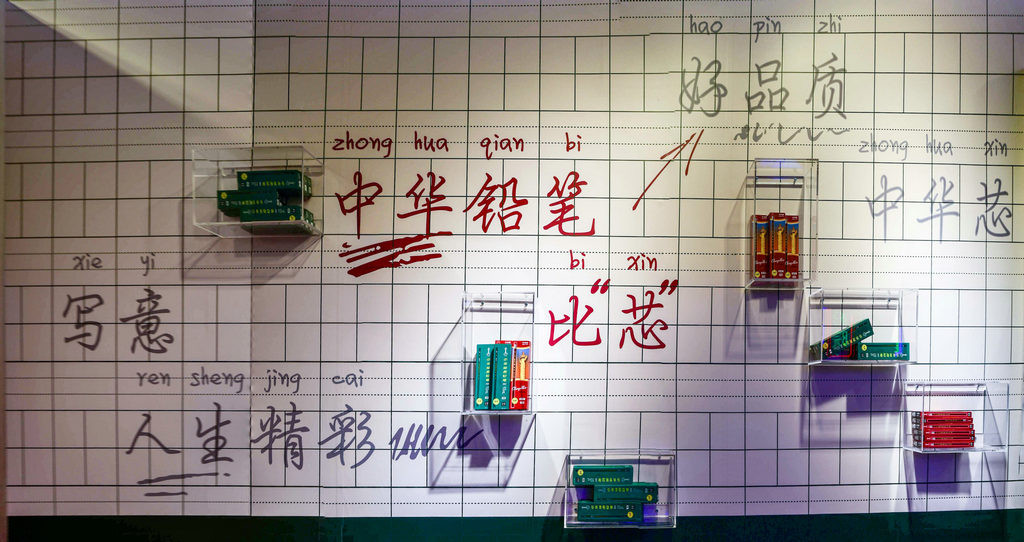 hao pin zhi
好品质
zhong hua qian bi
中华铅笔
zhong hua xin
中华芯
bi xin
比“芯”
xie yi
写意
ren sheng jing cai
人生精彩